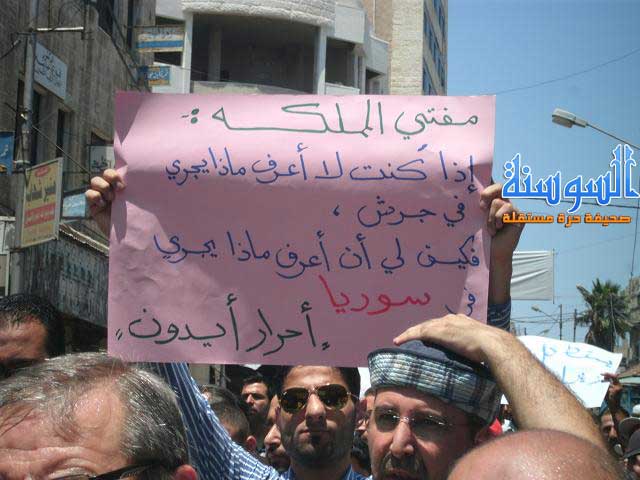 مفتي المملكه :-
إذا كنت لا أعرف ماذا يجري
في جرش ،
فكيف لي أن أعرف ماذا يجري
في سوريا
أحرار أيدون
السوسنة
صحيفة حرة مستقلة